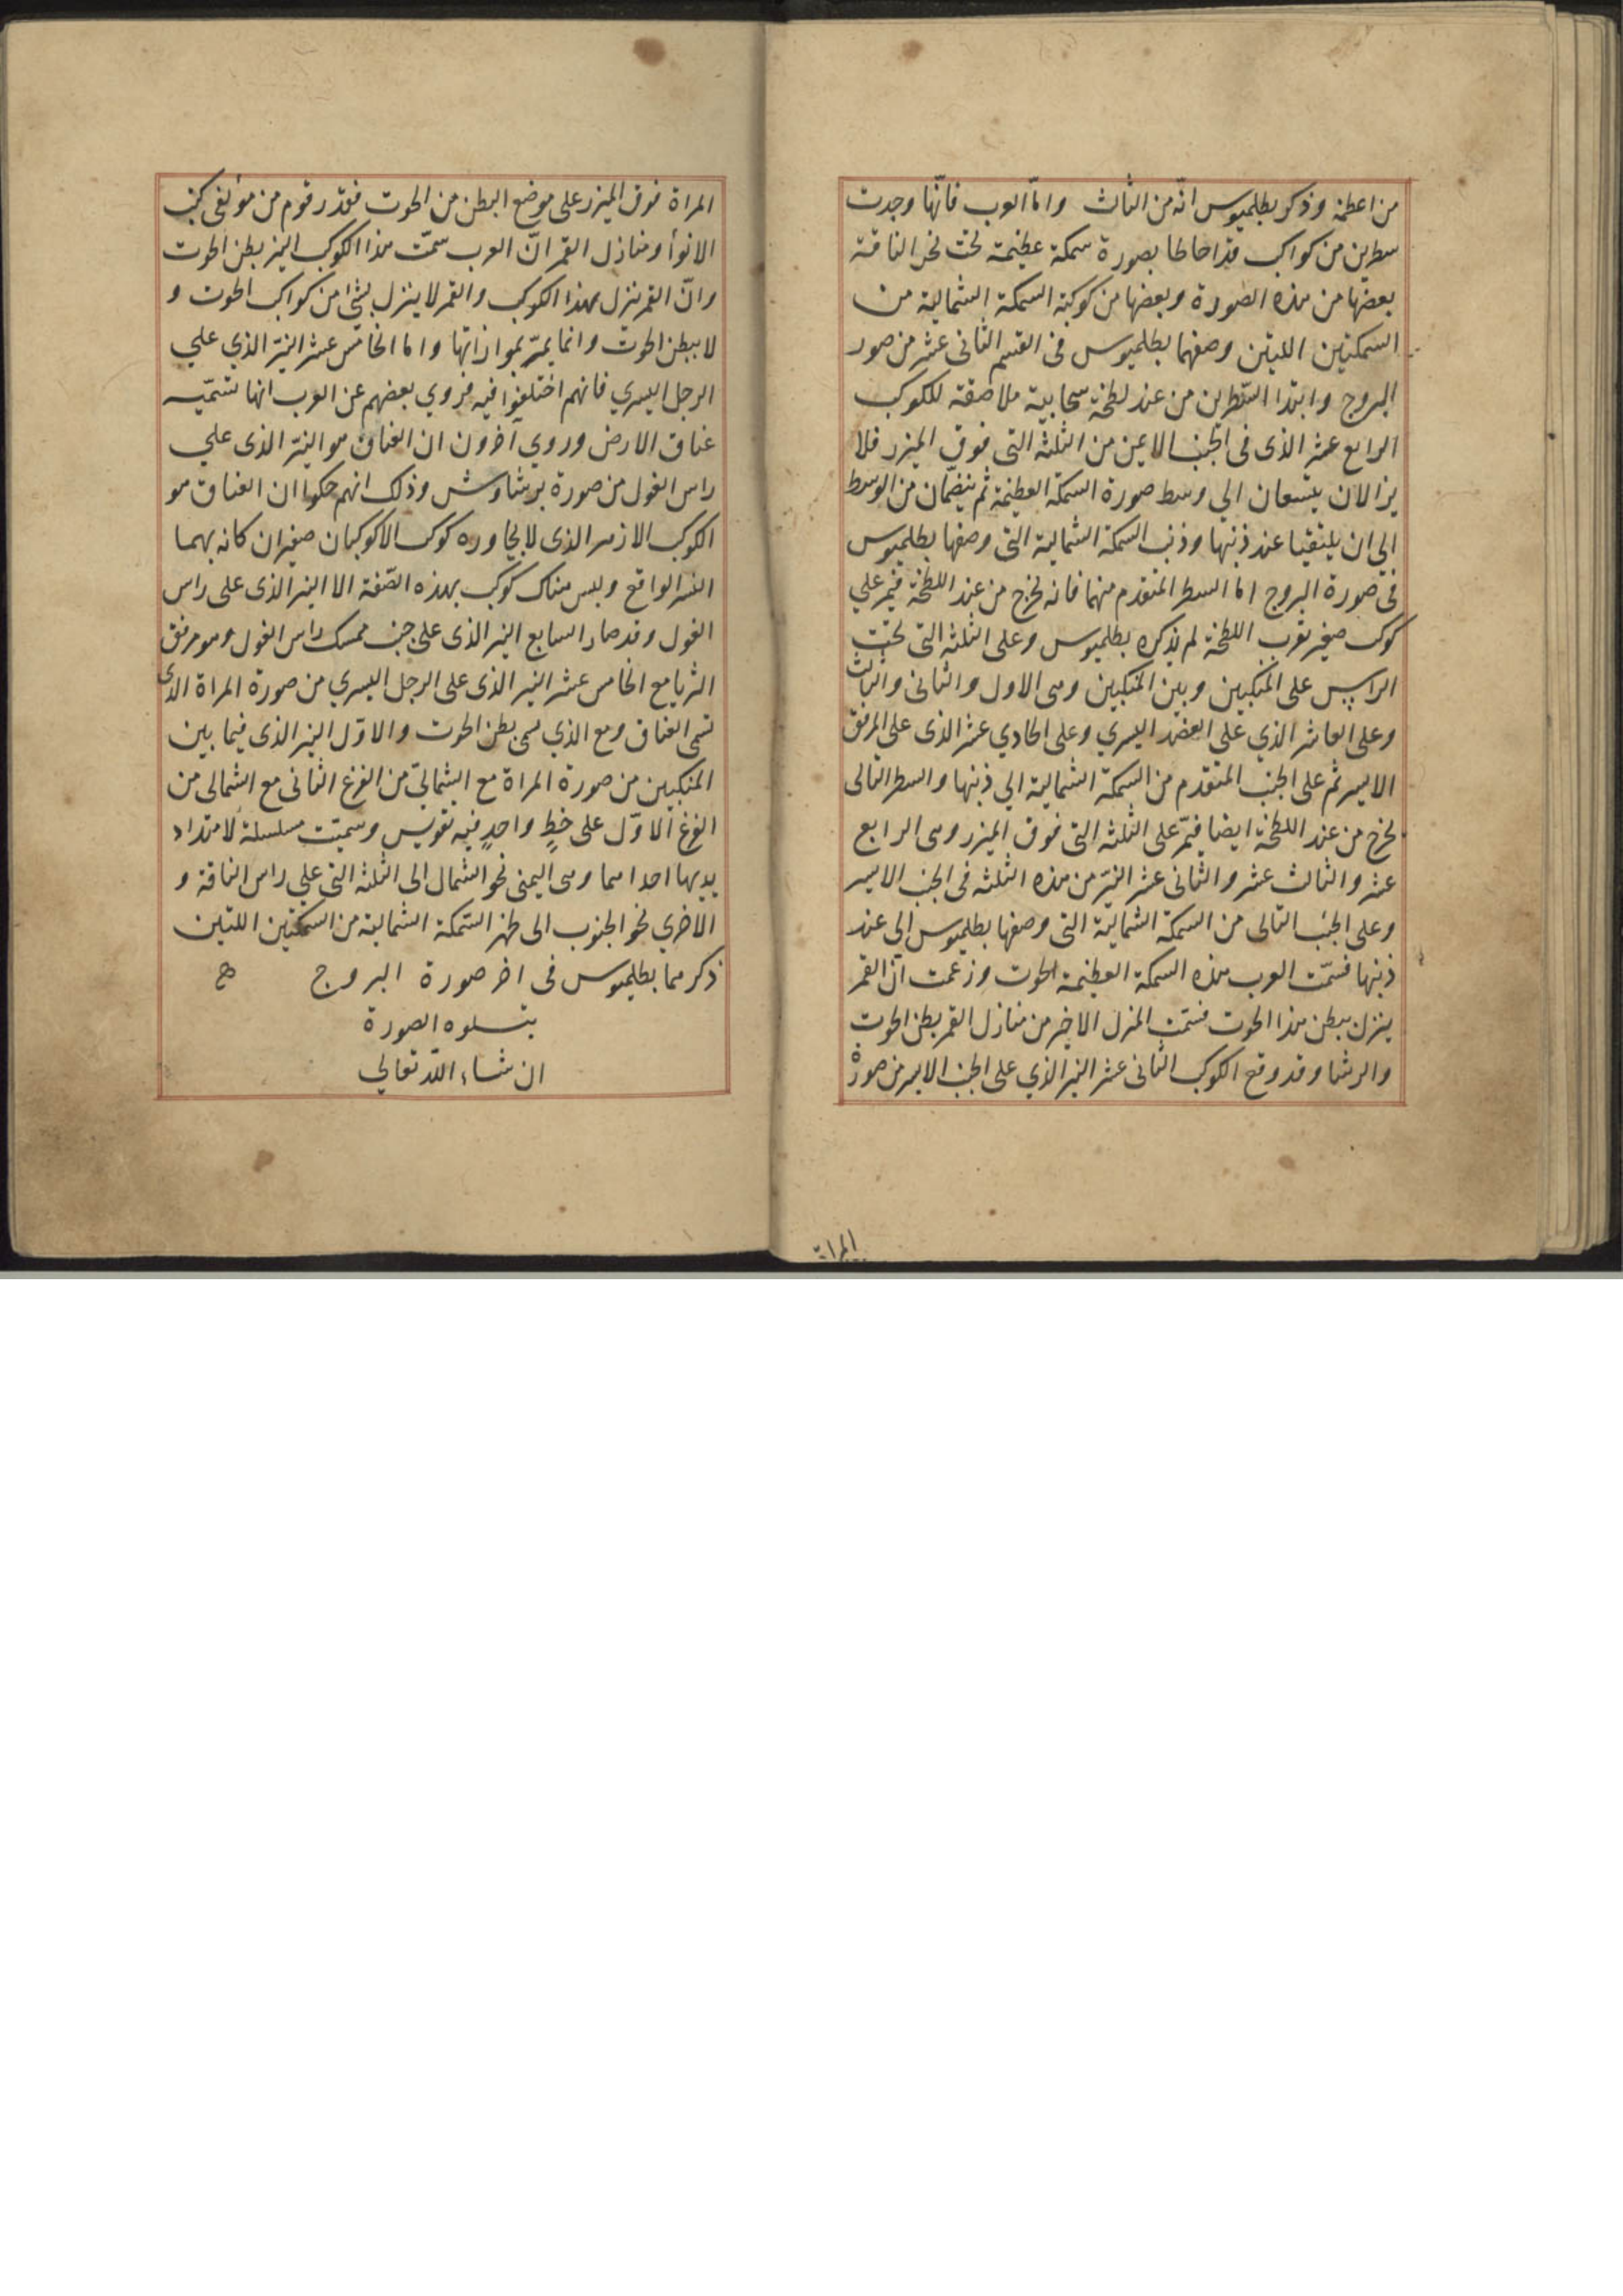 من اعظمه وذكر بطلميوس انّه من الثالث وامّا العرب فانّها وجدت
سطرين من كواكب قد احاطا بصورة سمكة عظيمة تحت نحر الناقة
بعضها من هذه الصورة وبعضها من كوكبة السمكة الشمالية من
السمكتين اللتين وصفهما بطلميوس فى القسم الثانى عشر من صور
البروج وابتدا السّطرين من عند لطخة سحابية ملاصقة للكوكب
الرابع عشر الذى فى الجنب الايمن من الثلثه التى فوق الميزر فلا
يزالان يتسعان الي وسط صورة السمكة العظيمة ثم ينضمّان من الوسط
الي ان يلتقيا عند ذنبها وذنب السمكة الشمالية التى وصفها بطلميوس
فى صورة البروج اما السطر المتقدم منهما فانه يخرج من عند اللطخة فيمر علي
كوكب صغير بقرب اللطخة لم يذكره بطلميوس وعلى الثلثه التى تحت
الراس على المنكبين وبين المنكبين وهى الاول والثانى والثالث
وعلى العاشر الذي على العضد اليسري وعلى الحادي عشر الذى على المرفق
الايسر ثم على الجنب المتقدم من السمكة الشمالية الي ذنبها والسطر التالى
يخرج من عند اللطخة ايضا فيمّر على الثلثه التى فوق الميزر وهى الرابع
عشر والثالث عشر والثانى عشر النيّر من هذه الثلثه فى الجنب الايسر
وعلى الجنب التالى من السمكة الشمالية التى وصفها بطلميوس الي عند
ذنبها فسمّت العرب هذه السمكة العظيمة الحوت وزعمت انّ القمر
ينزل ببطن هذا الحوت فسمّت المنزل الاخير من منازل القمر بطن الحوت
والرشا وقد وقع الكوكب الثانى عشر النير الذي على الجنب الايسر من صورة
المراة
المراة فوق الميزر على موضع البطن من الحوت فقدّر قوم من مؤلفى كتب
الانوأ ومنازل القمر انّ العرب سمّت هذا الكوكب النير بطن الحوت
وانّ القمر ينزل بهذا الكوكب والقمر لا ينزل بشئ من كواكب الحوت و
لا ببطن الحوت وانما يمرّ بموازاتها واما الخامس عشر النيّر الذي علي
الرجل اليسري فانهم اختلفوا فيه فروي بعضهم عن العرب انها تسمّيه
عناق الارض وروي آخرون ان العناق هو النيّر الذى علي
راس الغول من صورة برشاوش وذلك انهم حكوا ان العناق هو
الكوكب الازهر الذى لا يجاوره كوكب الا كوكبان صغيران كانه بهما
النسر الواقع وليس هناك كوكب بهذه الصّفة الا النير الذى على راس
الغول وقد صار السابع النير الذى على جنب ممسك راس الغول وهو مرفق
الثريا مع الخامس عشر النير الذى على الرجل اليسري من صورة المراة الذى
تسمى العناق ومع الذي يسمى بطن الحوت والاوّل النير الذى فيما بين
المنكبين من صورة المراة مع الشمالىّ من الفرغ الثانى مع الشمالى من
الفرغ الاوّل على خطٍ واحدٍ فيه تقويس وسميّت مسلسلة لامتداد
يديها احداهما وهى اليمنى نحو الشمال الى الثلثه التى علي راس الناقة و
الاخري نحو الجنوب الى ظهر السّمكة الشمالية من السمكتين اللتين
ذكرهما بطلميوس فى اخر صورة البروج
يتلوه الصورة
ان شاء اللّه تعالي